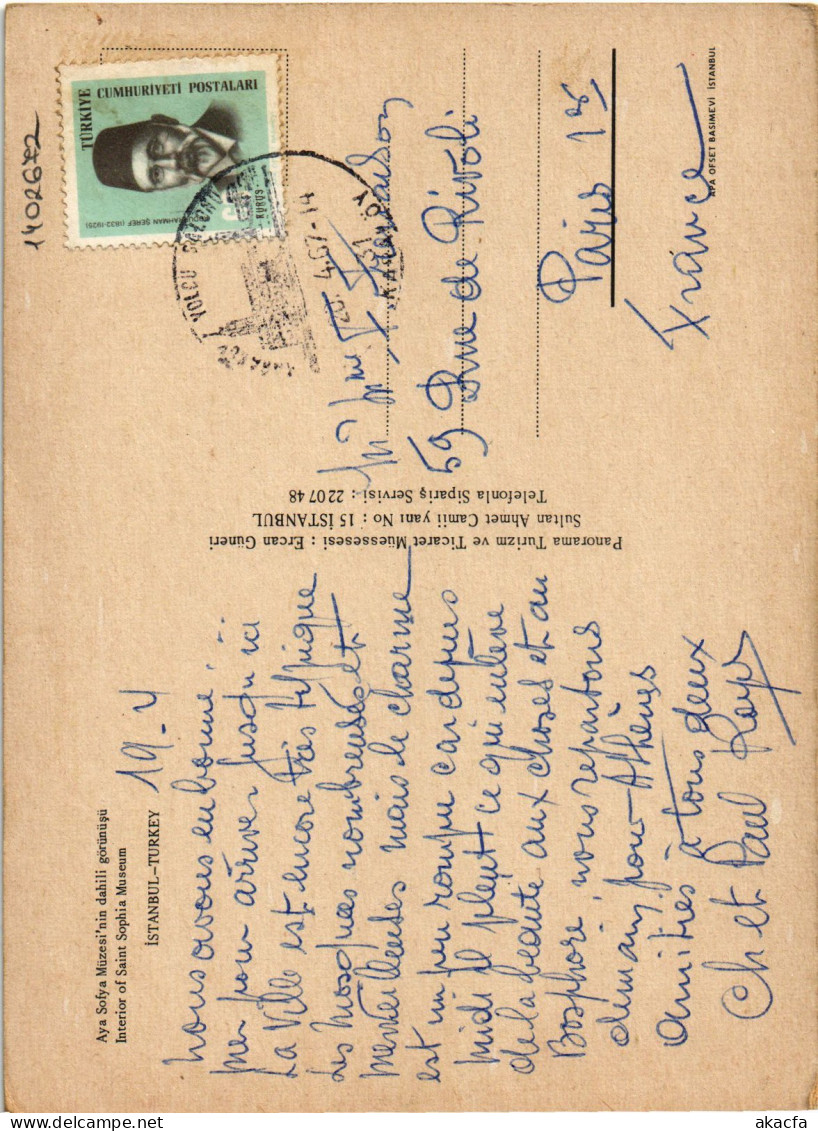 Aya Sofya Müzesi'nin dahili görünüşü
Interior of Saint Sophia Museum
İSTANBUL–TURKEY 19-4
nous avons eu bonne
mer pour arriver jusqu'ici
La Ville est encore très typique
Les Mosquées nombreuses et
merveilleuses mais le charme
est un peu rompu car depuis
midi il pleut ce qui enlève
de la beauté aux choses et au
Bosphore, nous repartons
demain pour Athènes
Amitiés à tous deux
Ch et Paul
Panorama Turizm ve Ticaret Müessesesi : Ercan Güneri
Sultan Ahmet Camii yanı No : 15 İSTANBUL
Telefonla Sipariş Servisi : 22 07 48
1402672
TÜRKİYE
CUMHURİYETİ POSTALARI
RAHMAN ŞEREF (1832-1925)
KURUŞ
YOLCU SALONU
20.4.67-14
KARAKÖY
Mr Mme
59 Rue de Rivoli
Paris 1er
France
APA OFSET BASIMEVİ İSTANBUL
akacfa